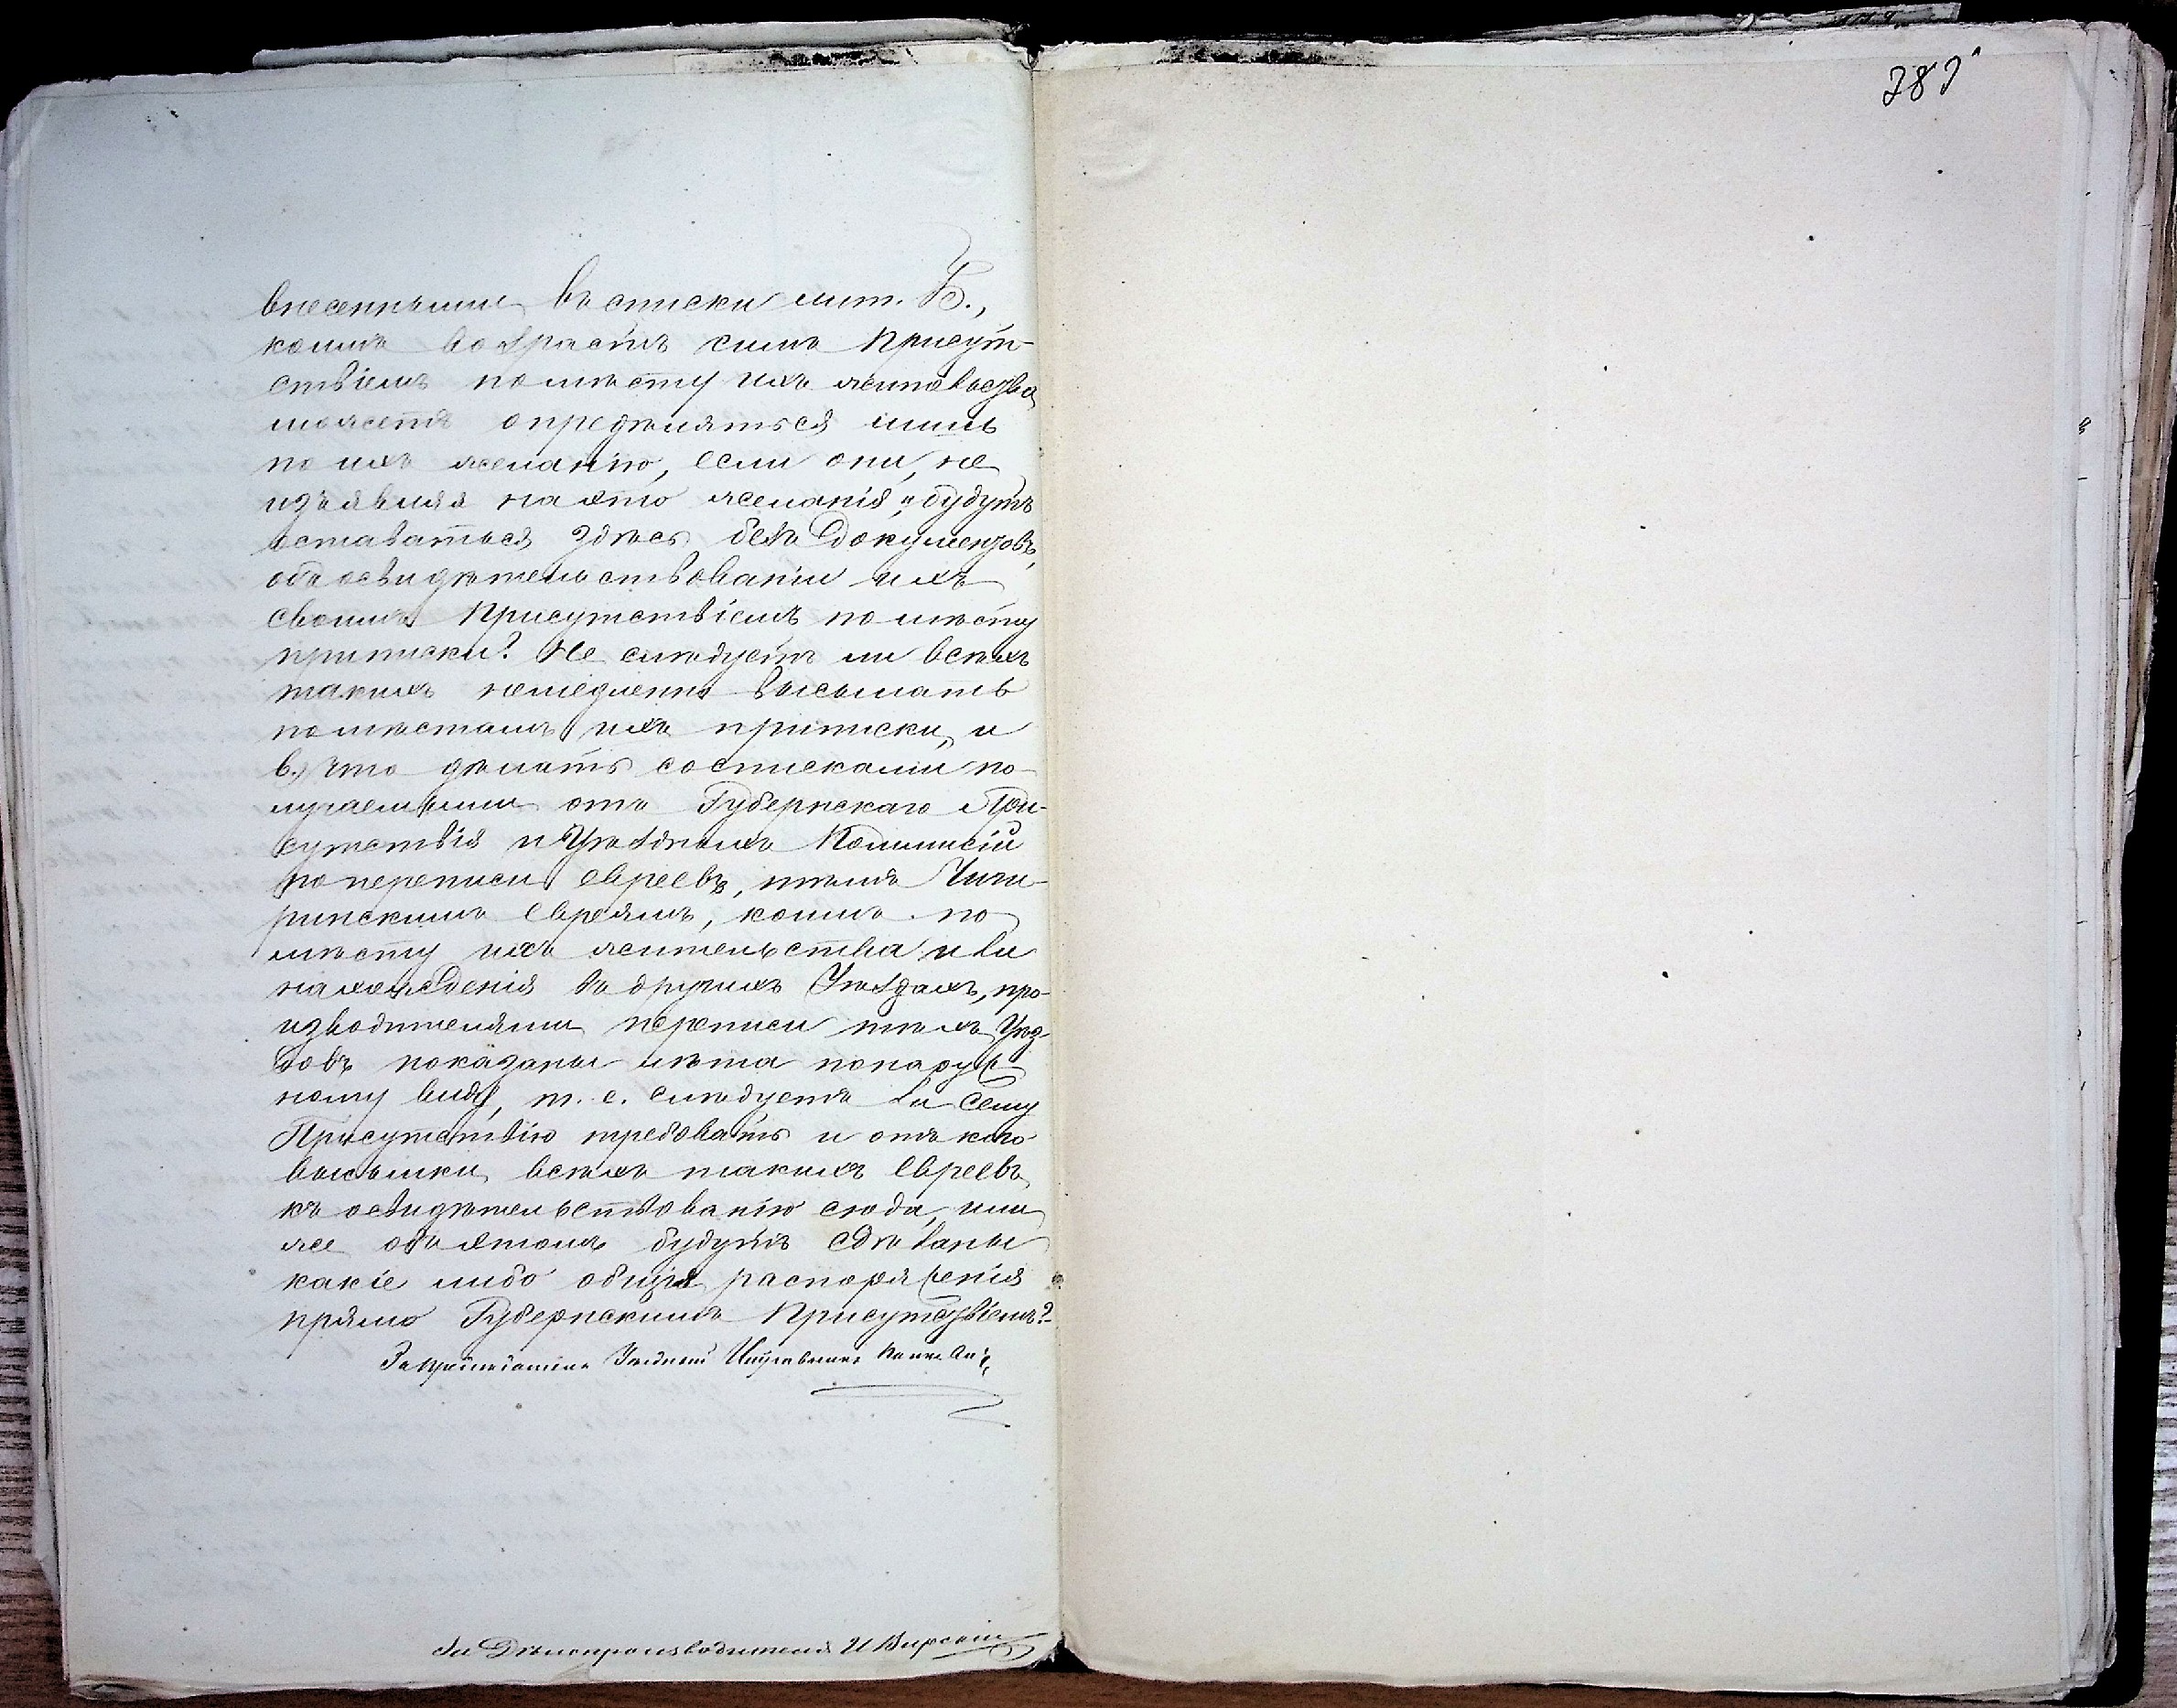 283
внесенными въ списки лит. Б.,
коимъ возрастъ симъ Присут-
ствіемъ по мѣсту ихъ жительства
можетъ опредѣляться лишь
по ихъ желанію, если они, не
изъявляя на это желанія, будутъ
оставаться здѣсь безъ документовъ,
объ освидѣтельствованіи ихъ
своимъ Присутствіемъ по мѣсту
приписки? Не слѣдуетъ ли всѣхъ
такихъ немедленно высылать
по мѣстамъ ихъ приписки, и
в.) что дѣлать со списками по-
лучаемыми отъ Губернскаго При-
сутствія и Уѣздныхъ Коммисій
по переписи евреевъ, тѣмъ Чиги-
ринскимъ евреямъ, коимъ по
мѣсту ихъ жительства или
нахожденія въ другихъ Уѣздахъ, про-
изводителями переписи тѣхъ Уѣз-
довъ показаны лѣта по наруж-
ному виду, т. е. слѣдуетъ ли сему
Присутствію требовать и отъ кого
высылки всѣхъ такихъ евреевъ
къ освидѣтельствованію сюда, или
же объ этомъ будутъ сдѣланы
какіе либо общія распоряженія
прямо Губернскимъ Присутствіемъ?
За Предсѣдателя Уѣздный Исправникъ
За Дѣлопроизводителя И Вирскій